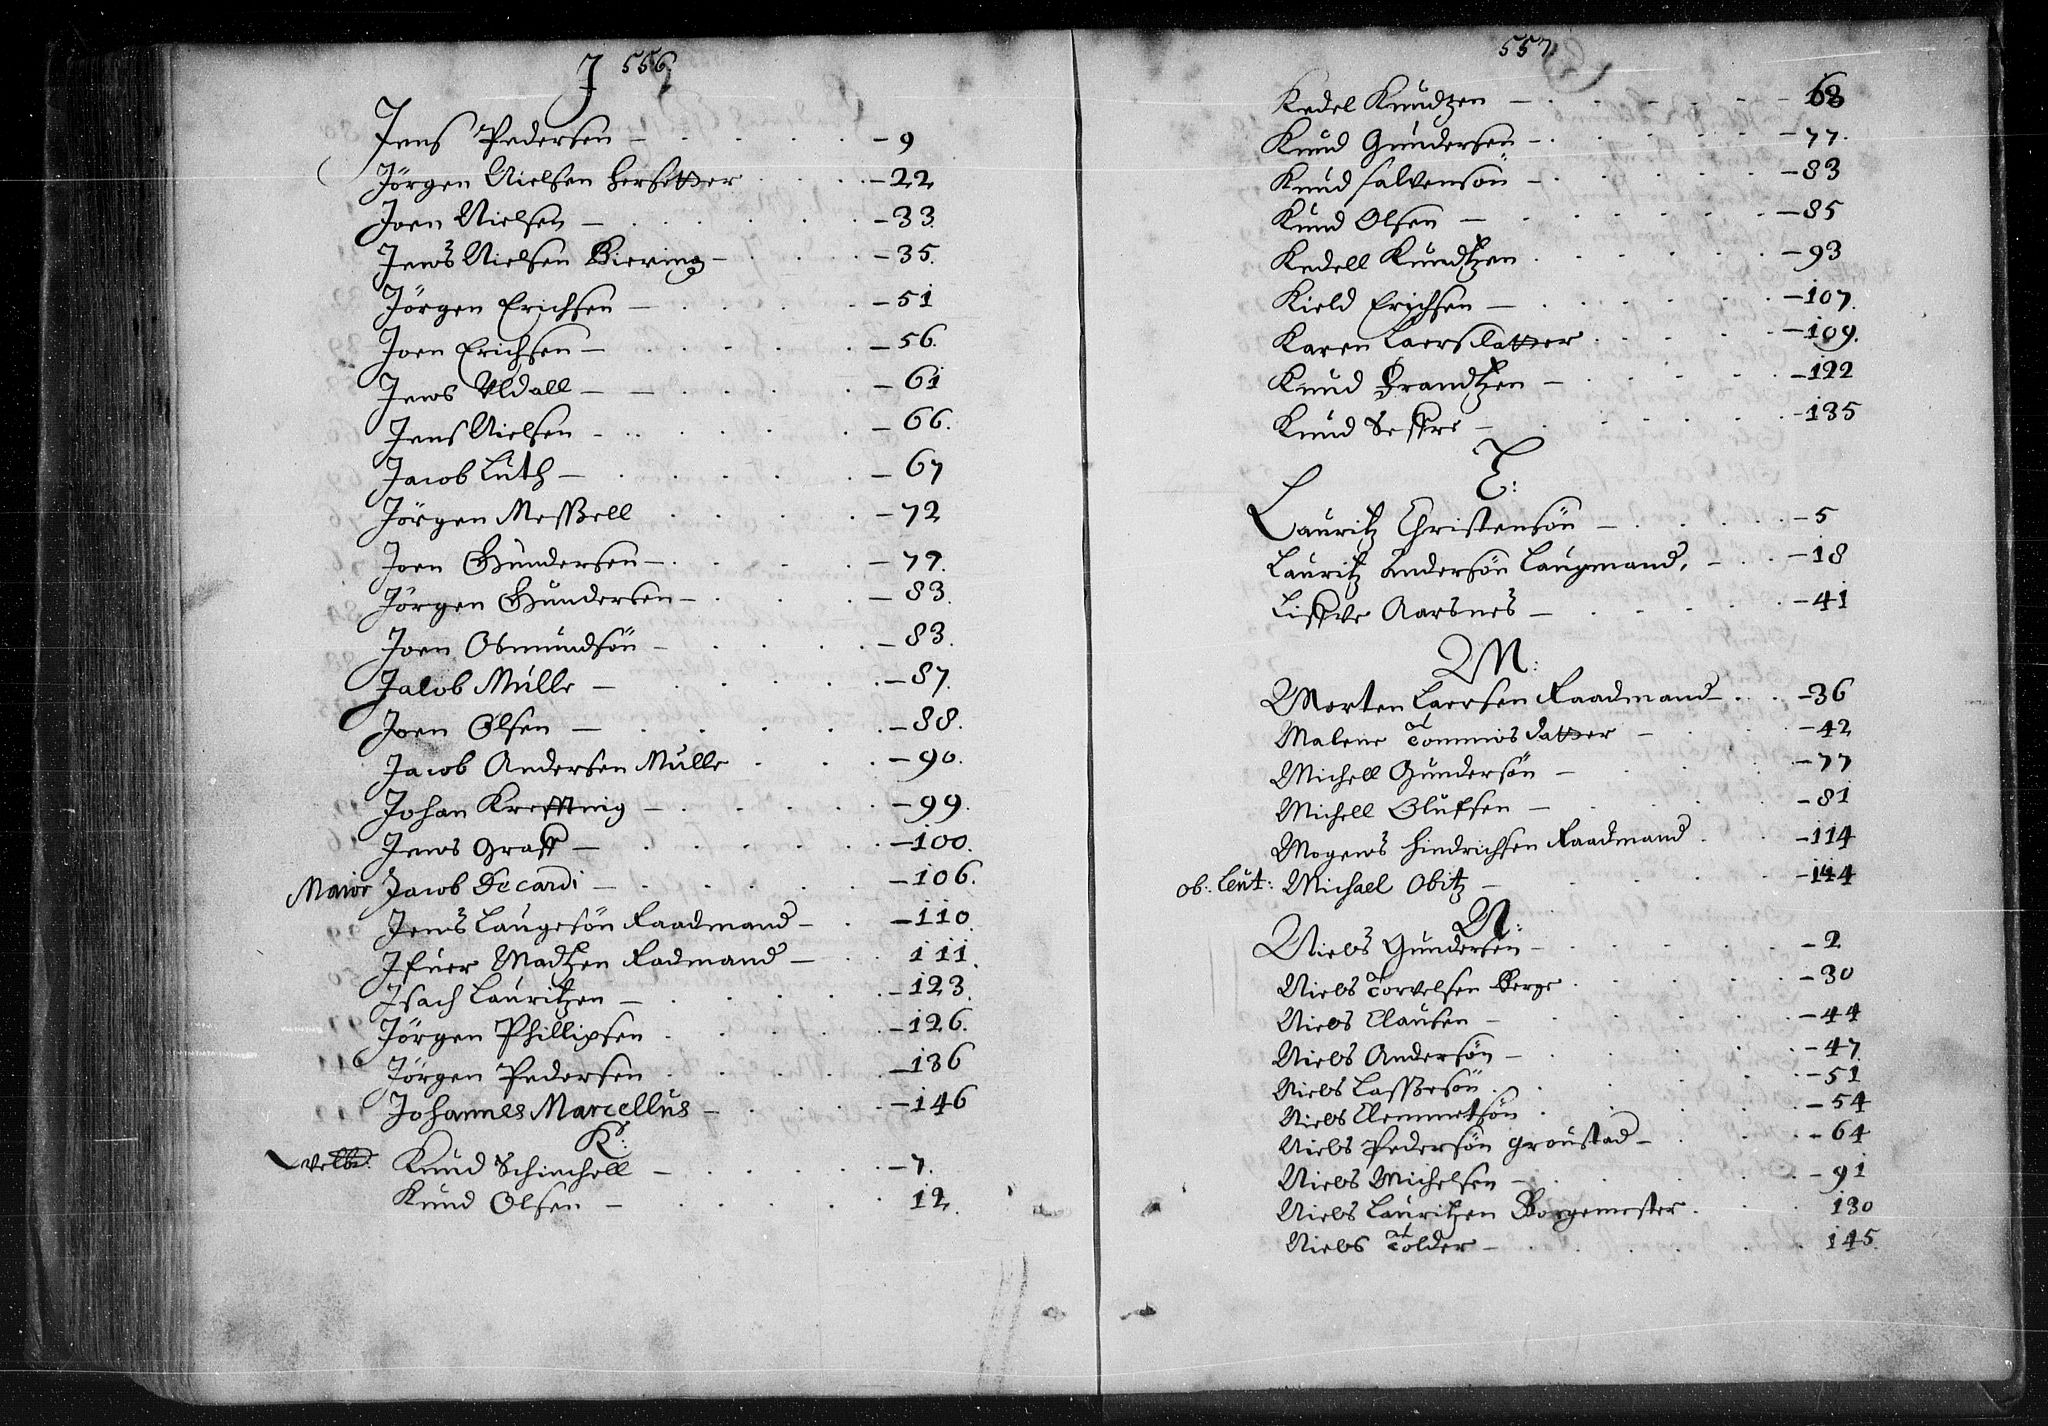 J 556.
Jens Pedersen - 9
Jörgen Nielsen Hersetter - 22
Joen Nielsen - 33.
Jens Nielsen Biering - 35.
Jörgen Erichsen - 51
Joen Erichsen - 56.
Jens Uldall - 61
Jens Nielsen - 66.
Jacob Luth - 67
Jörgen Messell - 72
Joen Gundersen - 77.
Jörgen Gundersen - 83.
Joen Osmundsön - 83.
Jacob Mülle - 87.
Joen Olsen - 88.
Jacob Andersen Mülle - 90.
Johan Kreffting - 99.
Jens Graff - 100.
Maior Jacob Decardi - 106.
Jens Laugesön Raadmand - 110.
Jfuer Madtzen Radmand - 111.
Jsach Lauritzen - 123.
Jörgen Phillipsen - 126.
Jörgen Pedersen - 136
Johannes Marcellus - 146
K:
velb: Knud Schinchell - 7.
Knud Olsen - 12.
557.
Kedel Knudtzen - 68
Knud Gundersen - 77.
Knud Salvensön - 83
Knud Olsen - 85
Kedell Knudtzen - 93
Kield Erichsen - 107.
Karen Laersdatter - 109.
Knud Brandtzen - 122
Knud - 135
L:
Lauritz Christensön - 5
Lauritz Andersön Laugmand, - 18
Aarsnes - 41
M:
Morten Laersen Raadmand - 36
Malene Tommisdatter - 42
Michell Gundersön - 77
Michell Olufsen - 81
Mogens Hindrichsen Raadmand - 114
ob: leut: Michael Obitz - 144
N:
Niels Gundersen - 2
Niels Torvelsen Berge - 30
Niels Clausen - 44
Niels Andersön - 47
Niels Lassesön - 51
Niels Clemmetsön - 54
Niels Pedersön Groustad - 64
Niels Michelsen - 91
Niels Lauritzen Borgemester. 130
Niels Tolder - 145.